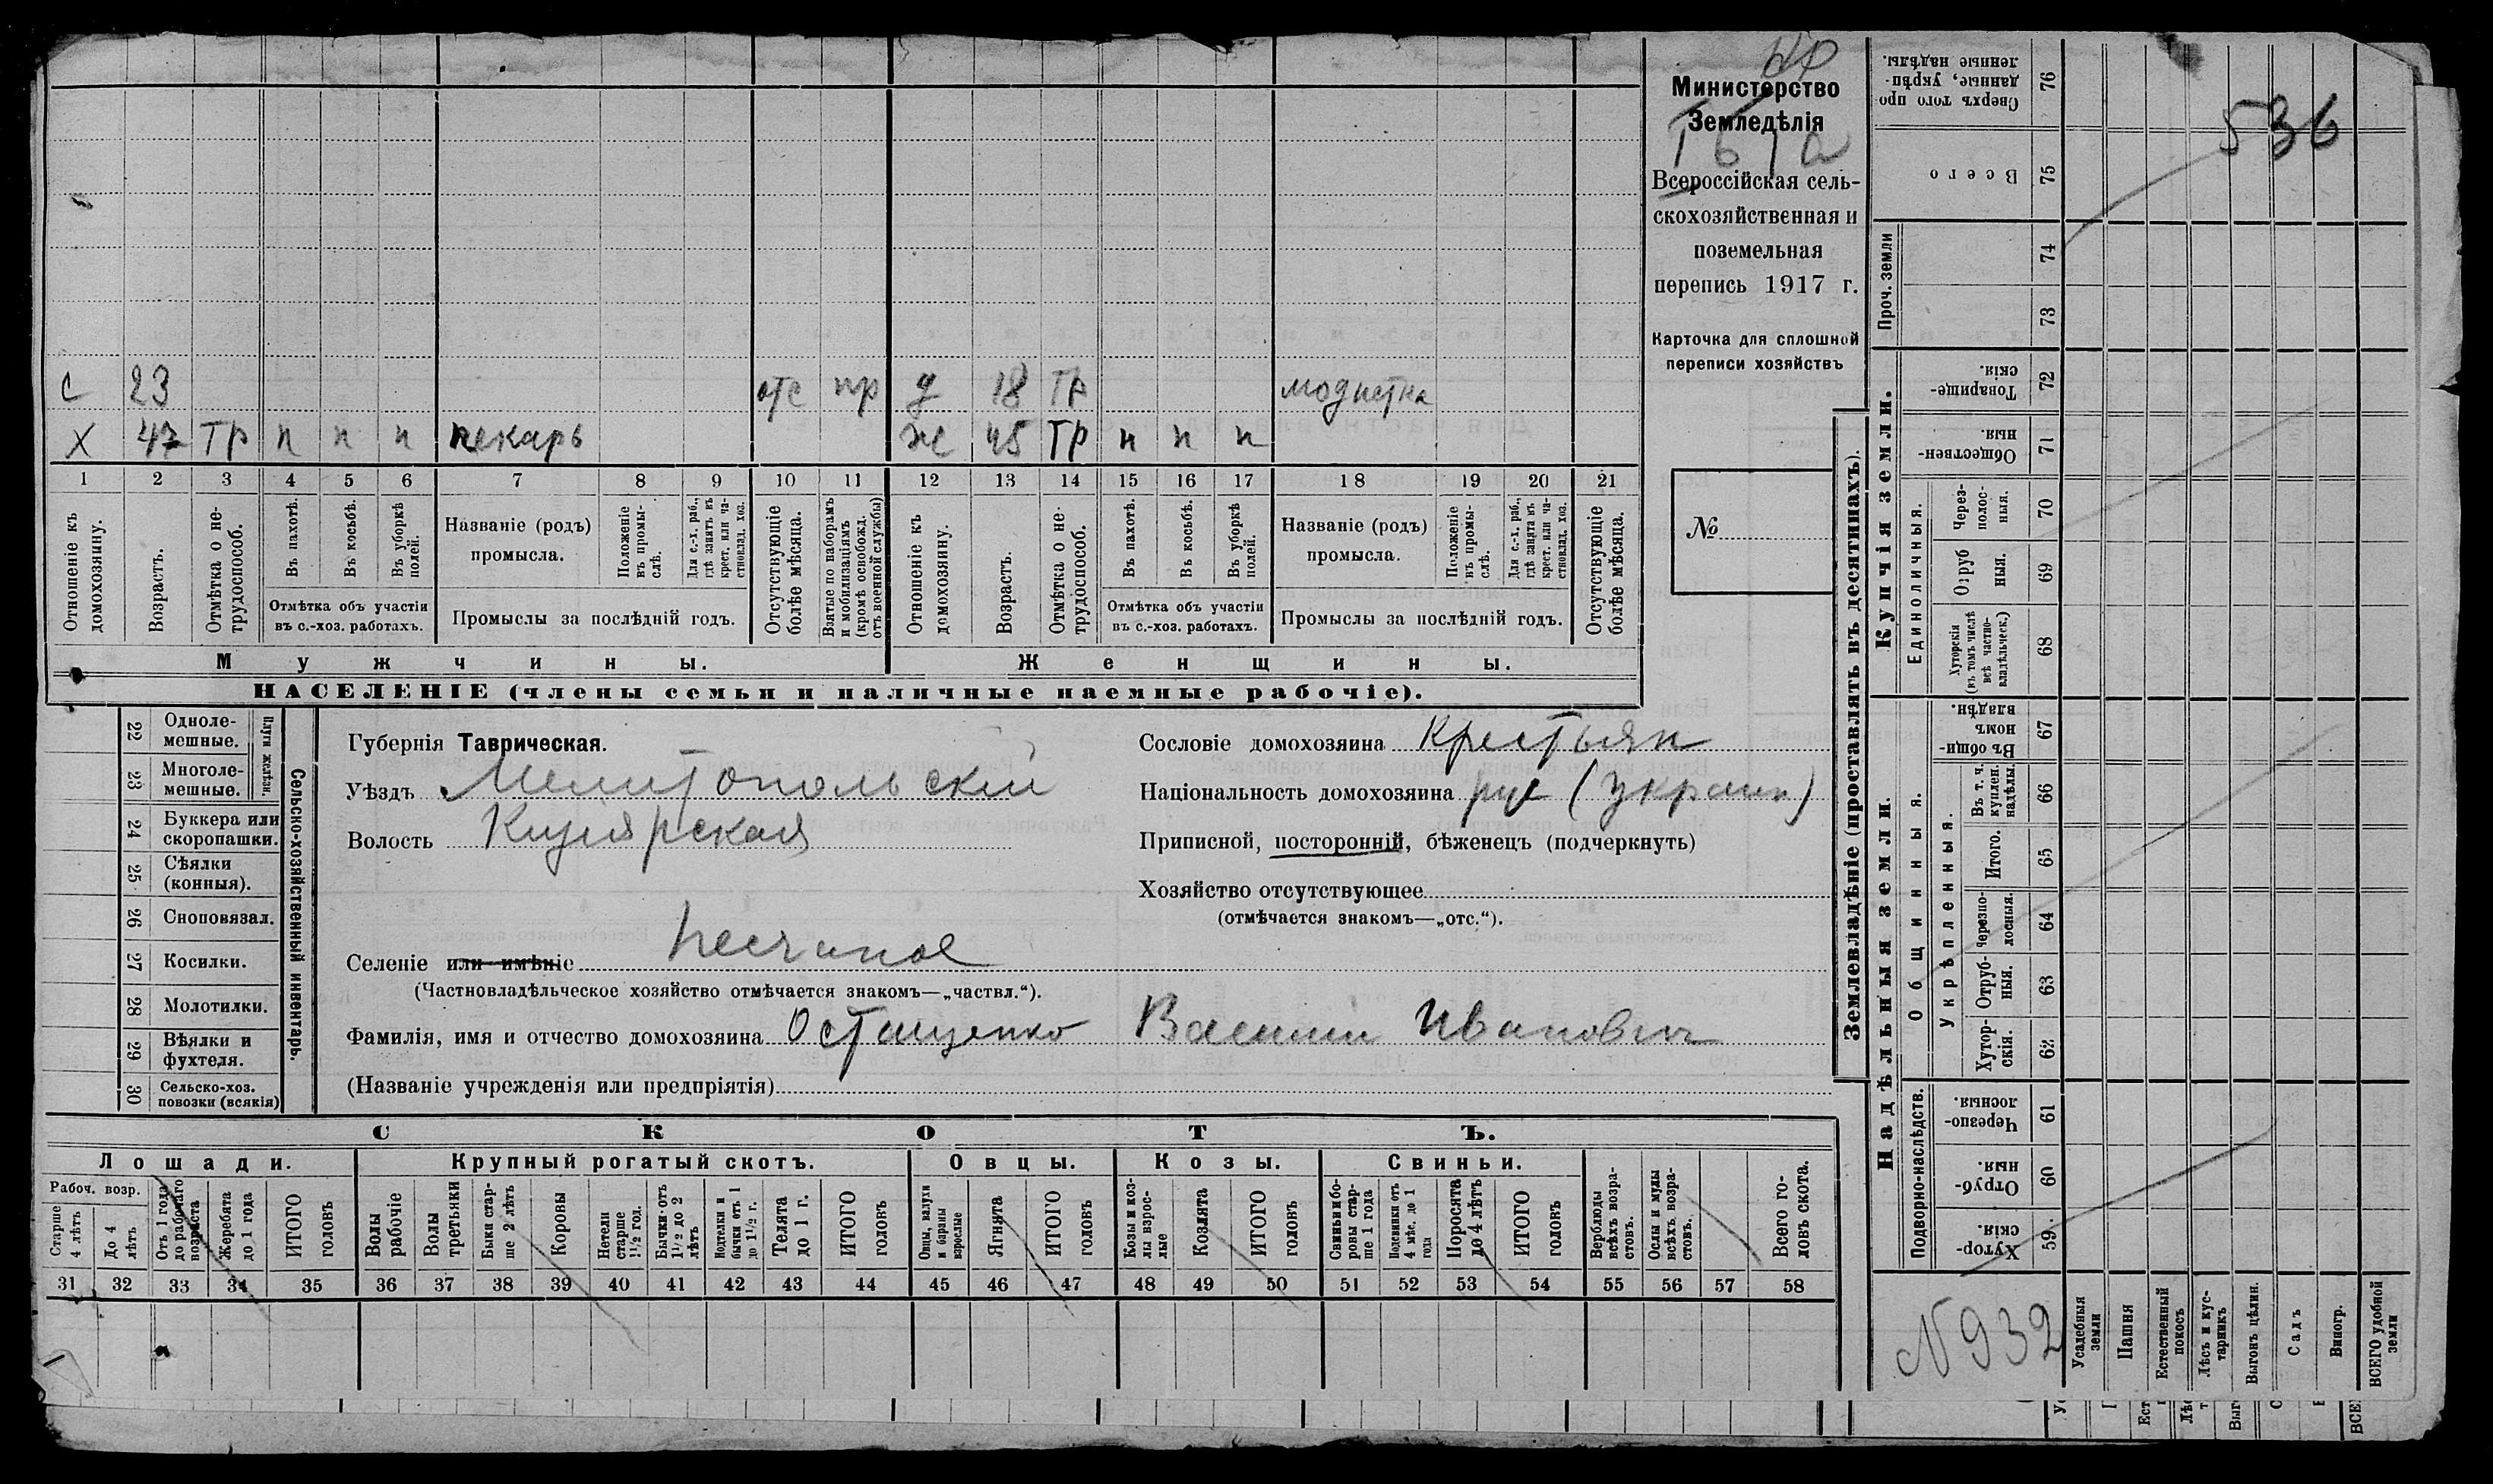 Министерство
Земледѣлія
Всероссійская сель-
скохозяйственная и
поземельная
перепись 1917 г.
Карточка для сплошной
переписи хозяйствъ
№
536
с 23 отс пр д 18 ТР модистка
х 47 ТР п п п пекарь ж 45 ТР п п п
1 2 3 4 5 6 7 8 9 10 11 12 13 14 15 16 17 18 19 20 21
Отношеніе къ домохозяину.
Возрастъ.
Отмѣтка о не-трудоспособ.
Въ пахотѣ.
Въ косьбѣ.
Въ уборкѣ полей.
Отмѣтка объ участіи
въ с.-хоз. работахъ.
Названіе (родъ)
промысла.
Положеніе въ промы-слѣ.
Для с.-х. раб., гдѣ занятъ въ крест. или ча-стновлад. хоз.
Промыслы за послѣдній годъ.
Отсутствующіе болѣе мѣсяца.
Взятые по наборамъ и мобилизаціямъ (кромѣ освобожд. отъ военной службы)
Отношеніе къ домохозяину.
Возрастъ.
Отмѣтка о не-трудоспособ.
Въ пахотѣ.
Въ косьбѣ.
Въ уборкѣ полей.
Отмѣтка объ участіи
въ с.-хоз. работахъ.
Названіе (родъ)
промысла.
Положеніе въ промы-слѣ.
Для с.-х. раб., гдѣ занята въ крест. или ча-стновлад. хоз.
Промыслы за послѣдній годъ.
Отсутствующіе болѣе мѣсяца.
Мужчины. Женщины.
НАСЕЛЕНІЕ (члены семьи и наличные наемные рабочіе).
Сельско-хозяйственный инвентарь.
Плуги желѣзн.
22 Одноле-мешные.
23 Многоле-мешные.
24 Буккера или скоропашки.
25 Сѣялки (конныя).
26 Сноповязал.
27 Косилки.
28 Молотилки.
29 Вѣялки и фухтеля.
30 Сельско-хоз. повозки (всякія)
Губернія Таврическая.
Уѣздъ Мелитопольскій
Волость Кизіярская
Селеніе или имѣніе Песчаное
(Частновладѣльческое хозяйство отмѣчается знакомъ—„частвл.“).
Фамилія, имя и отчество домохозяина Остащенко Василий Иванович
(Названіе учрежденія или предпріятія)
Сословіе домохозяина Крестьян
Національность домохозяина рус (украин)
Приписной, посторонній, бѣженецъ (подчеркнуть)
Хозяйство отсутствующее
(отмѣчается знакомъ—„отс.“).
СКОТЪ.
Лошади. Крупный рогатый скотъ. Овцы. Козы. Свиньи.
Рабоч. возр.
Старше 4 лѣтъ
До 4 лѣтъ
Отъ 1 года до рабочаго возраста
Жеребята до 1 года
ИТОГО головъ
Волы рабочіе
Волы третьяки
Быки стар-ше 2 лѣтъ
Коровы
Нетели старше 1½ год.
Бычки отъ 1½ до 2 лѣтъ
Подтелки и бычки отъ 1 до 1½ г.
Телята до 1 г.
ИТОГО головъ
Овцы, валухи и бараны взрослые
Ягнята
ИТОГО головъ
Козы и коз-лы взрос-лые
Козлята
ИТОГО головъ
Свиньи и бо-ровы стар-ше 1 года
Подсвинки отъ 4 мѣс. до 1 года
Поросята до 4 лѣтъ
ИТОГО головъ
Верблюды всѣхъ возра-стовъ.
Ослы и мулы всѣхъ возра-стовъ.
Всего го-ловъ скота.
31 32 33 34 35 36 37 38 39 40 41 42 43 44 45 46 47 48 49 50 51 52 53 54 55 56 57 58
Землевладѣніе (проставлять въ десятинахъ).
Купчія земли.
Надѣльныя земли.
Проч. земли
Единоличныя.
Общинныя.
Укрѣпленныя.
Подворно-наслѣдств.
Сверхъ того про-данные, укрѣп-ленные надѣлы. 76
Всего 75
74
73
Товарище-скія. 72
Обществен-ныя. 71
Через-полос-ныя. 70
Отруб ныя. 69
Хуторскія (въ томъ числѣ всѣ частно-владѣльческ.) 68
Въ общи-номъ владѣн. 67
Въ т. ч. куплен. надѣлы. 66
Итого. 65
Черезпо-лосныя. 64
Отруб-ныя. 63
Хутор-скія. 62
Черезпо-лосныя. 61
Отруб-ныя. 60
Хутор-скія. 59.
N 932
Усадебныя земли
Пашня
Естественный покосъ
Лѣсъ и кус-тарникъ
Выгонъ цѣлин.
Садъ
Виногр.
ВСЕГО удобной земли